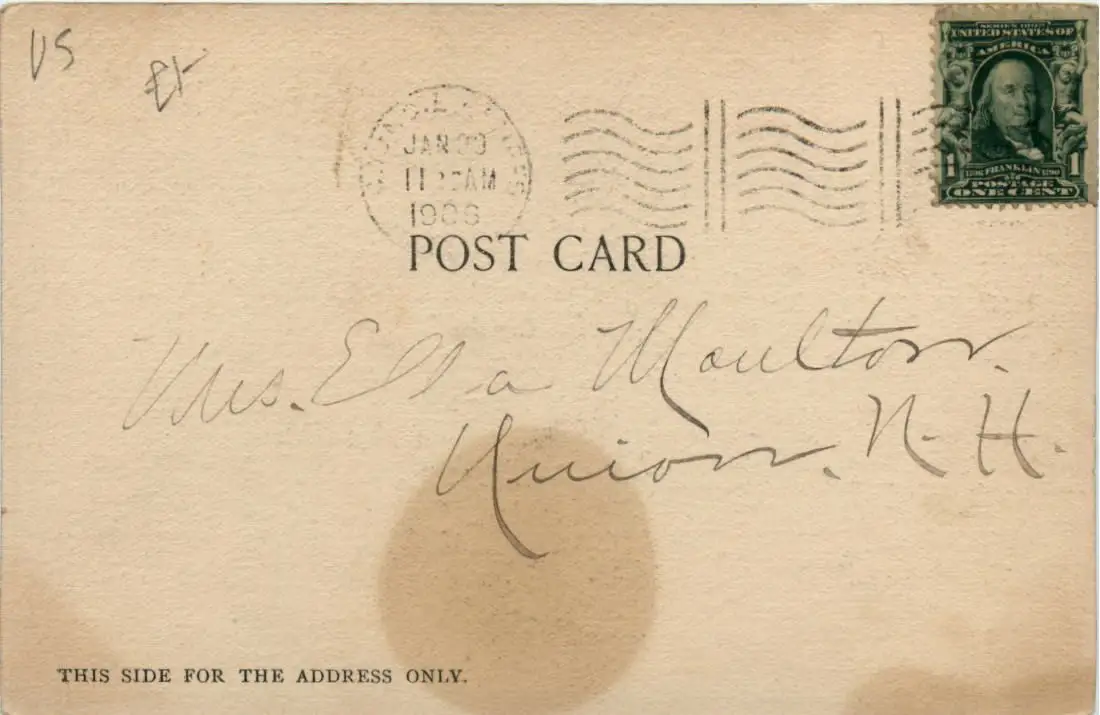 US
£1-
JAN
AM
SERIES 1902
UNITED STATES OF
AMERICA
1 1
1706 FRANKLIN 1790
POSTAGE
ONE CENT
POST CARD
Mrs. Ella Moulton.
Union. N. H.
THIS SIDE FOR THE ADDRESS ONLY.